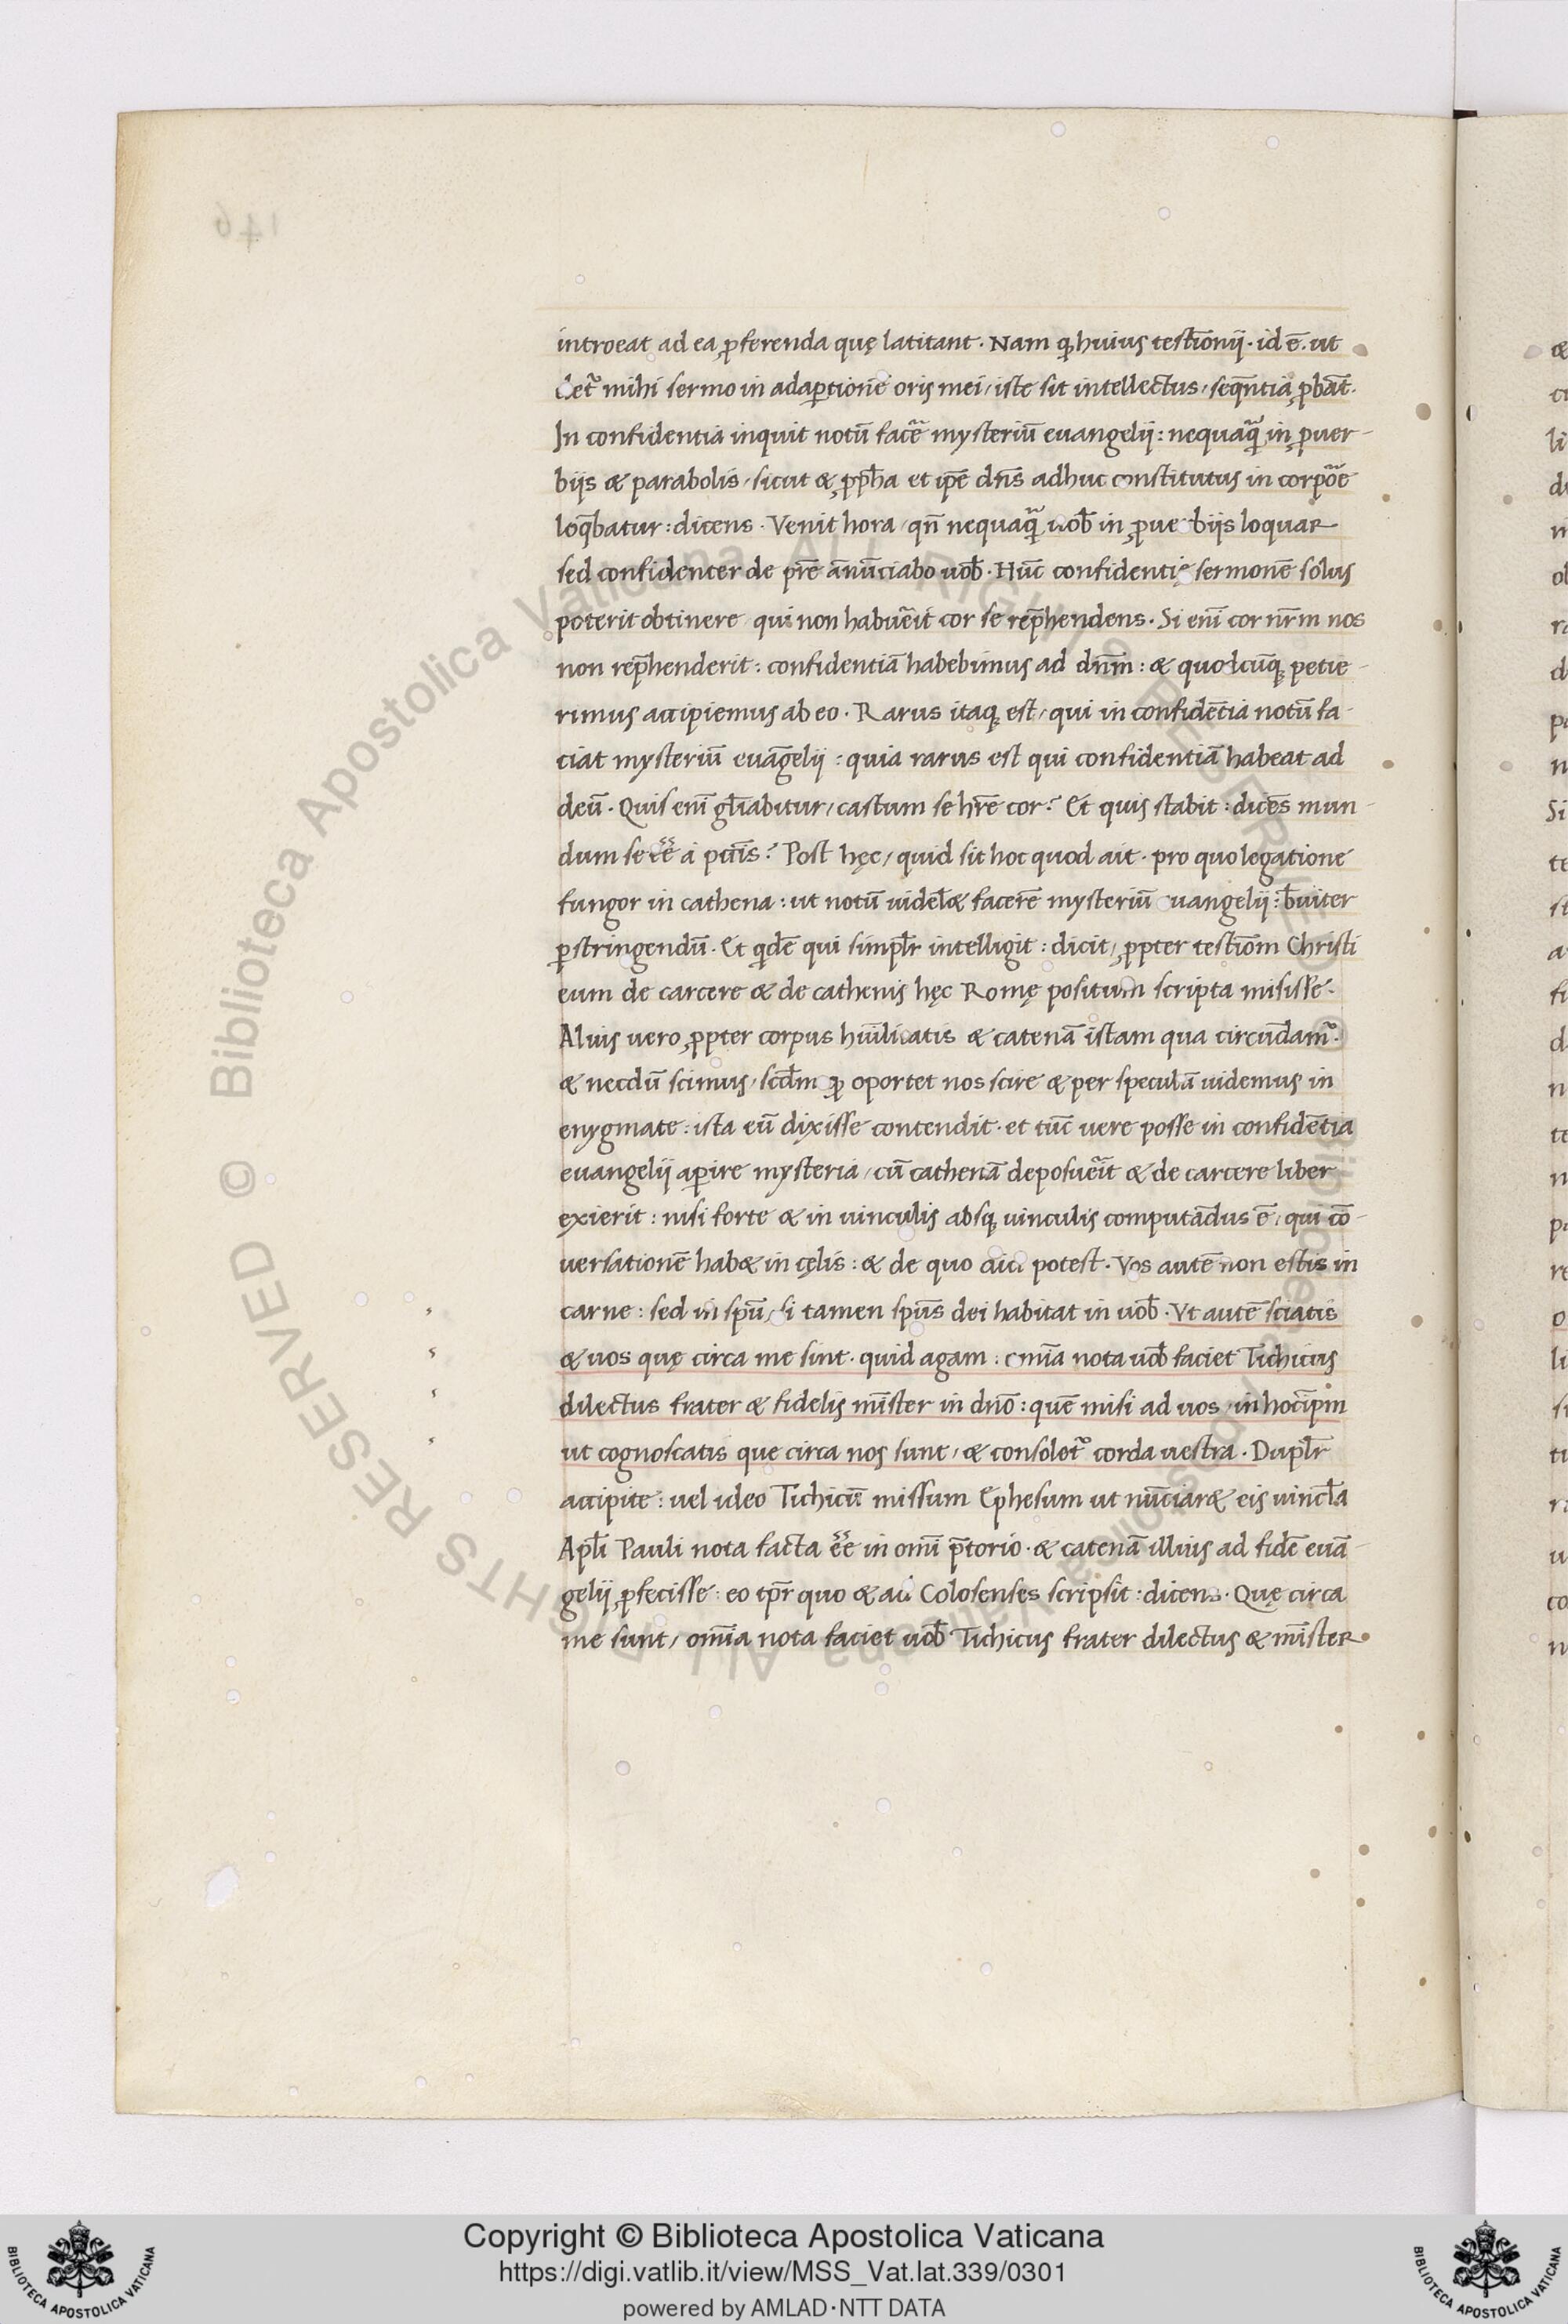 introeat ad ea ꝓferenda quę latitant. Nam ꝙ huius testiōnij. id ē. ut
det᷑ mihi sermo in adaꝑtione oris mei, iste sit intellectus, seqn̄tia ꝓbāt.
In confidentia inquit notū facē mysteriū euangelij: nequaꝙ̄ in ꝓuer-
bijs & parabolis, sicut & ꝓpħa et ip̄e dn̄s adhuc constitutus in corpōe
loq̄batur: dicens. Venit hora, qn̄ nequaꝙ̄ uob̄ in ꝓuerbijs loquar
sed confidenter de pr̄e ānūciabo uob̄. Hūc confidentię sermonē solus
poterit obtinere qui non habuēit cor se rep̄hendens. Si enī cor nr̄m nos
non rep̄henderit: confidentiā habebimus ad dn̄m: & quodcūꝗ petie-
rimus accipiemus ab eo. Rarus itaꝗ est, qui in confidētia notū fa-
ciat mysteriū euāgelij: quia rarus est qui confidentiā habeat ad
deū. Quis enī gl̄iabitur, castum se hr̄e cor? Et quis stabit: dicēs mun-
dum se ēē a pctīs? Post hęc, quid sit hoc quod ait. pro quo legatione
fungor in cathena: ut notū uidel̄& facerē mysteriū euangelij: b̄uiter
ꝑstringendū. Et qdē qui simpl̄r intelligit: dicit, ꝓpter testiōm Christi
eum de carcere & de cathenis hęc Romę positum scripta misisse.
Aluis uero ꝓpter corpus hūilitatis & catenā istam qua circūdam᷑.
& necdū scimus, scd̄m ꝙ oportet nos scire & per speculā uidemus in
enygmate: ista eū dixisse contendit. et tūc uere posse in confidētia
euangelij aꝑire mysteria, cū cathenā deposuēit & de carcere liber
exierit: nisi forte & in uinculis absꝗ uinculis computādus ē, qui cō-
uersationē hab& in cęlis: & de quo dici potest. Vos autē non estis in
carne: sed in spū, si tamen spūs dei habitat in uob̄. Vt autē sciatis
& uos quę circa me sint. quid agam: omīa nota uob̄ faciet Tichicus
dilectus frater & fidelis mīster in dn̄o: quē misi ad uos, in hoc īpm
ut cognoscatis que circa nos sunt, & consolet᷑ corda uestra. Dupl̄r
accipite: uel ideo Tichicū missum Ephesum ut nūciar& eis uincl̄a
Apl̄i Pauli nota facta ēē in omī p̄torio. & catenā illius ad fidē euā-
gelij ꝓfecisse: eo tp̄r quo & ad Colosenses scripsit: dicens. Quę circa
me sunt, omīa nota faciet uob̄ Tichicus frater dilectus & mīster
Copyright © Biblioteca Apostolica Vaticana
https://digi.vatlib.it/view/MSS_Vat.lat.339/0301
powered by AMLAD·NTT DATA